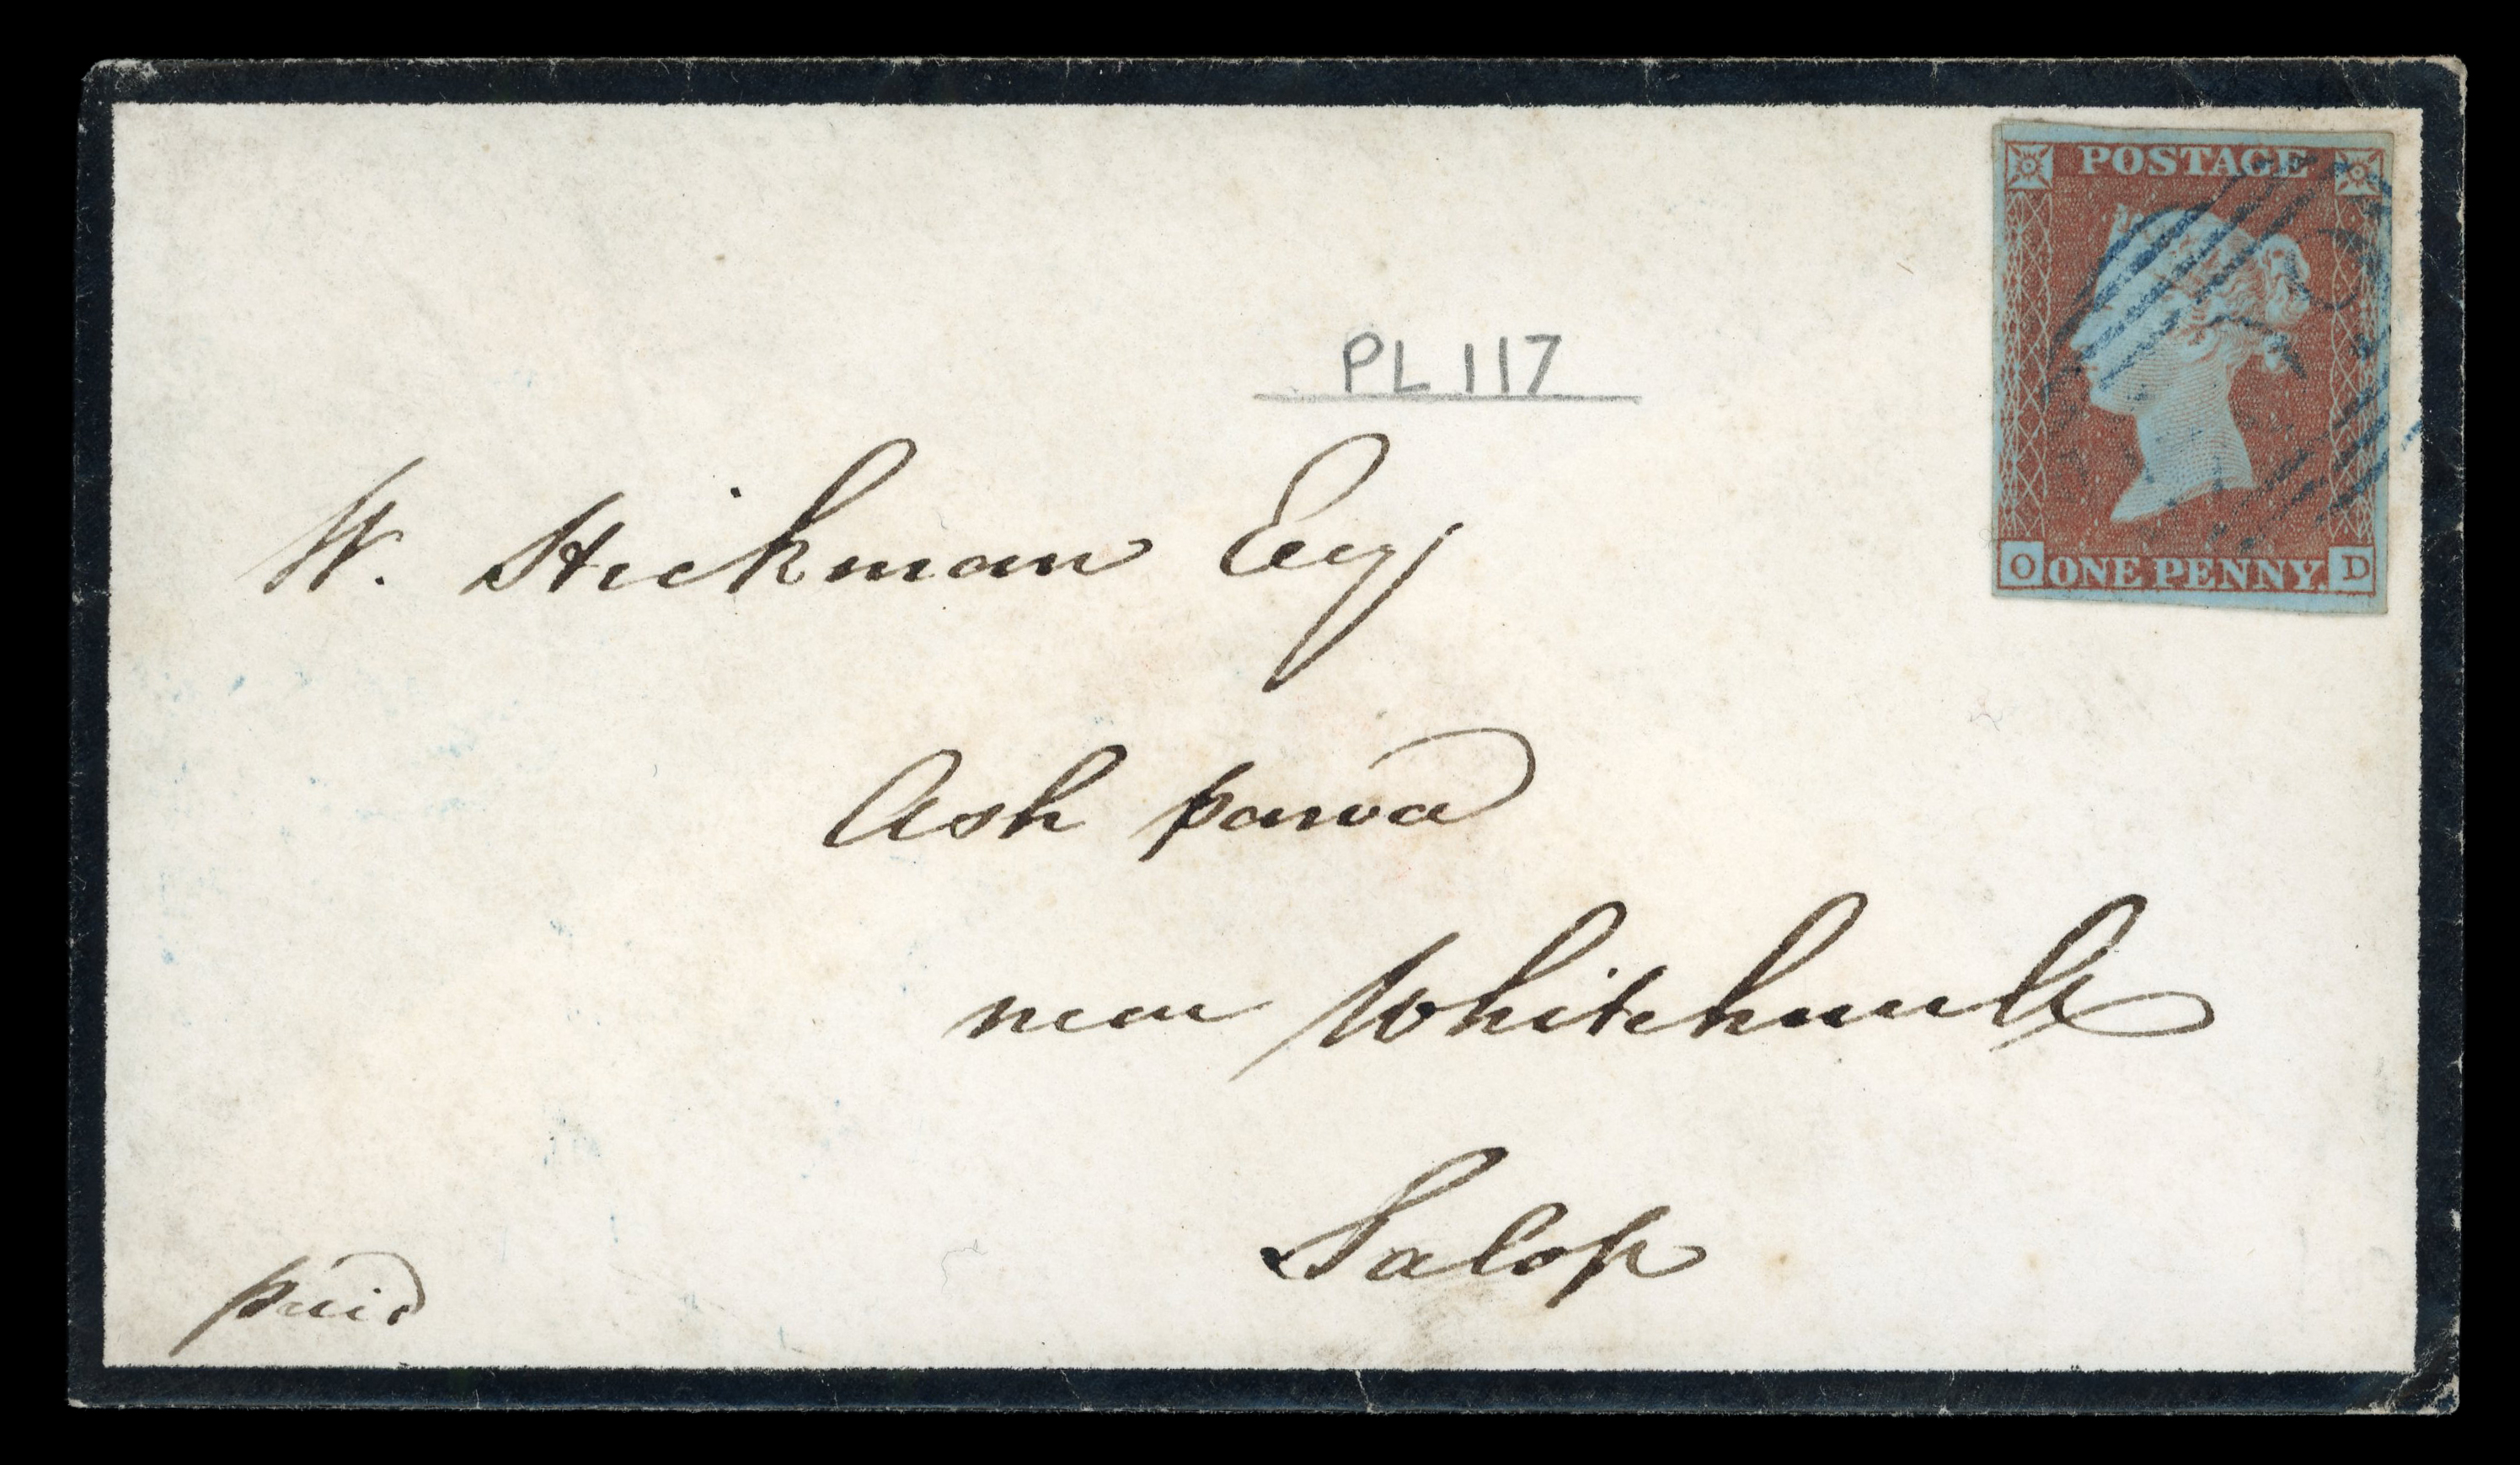 POSTAGE
O ONE PENNY. D
PL 117
W. Hickman Esq
Ash parva
near Whitchurch
Salop
paid